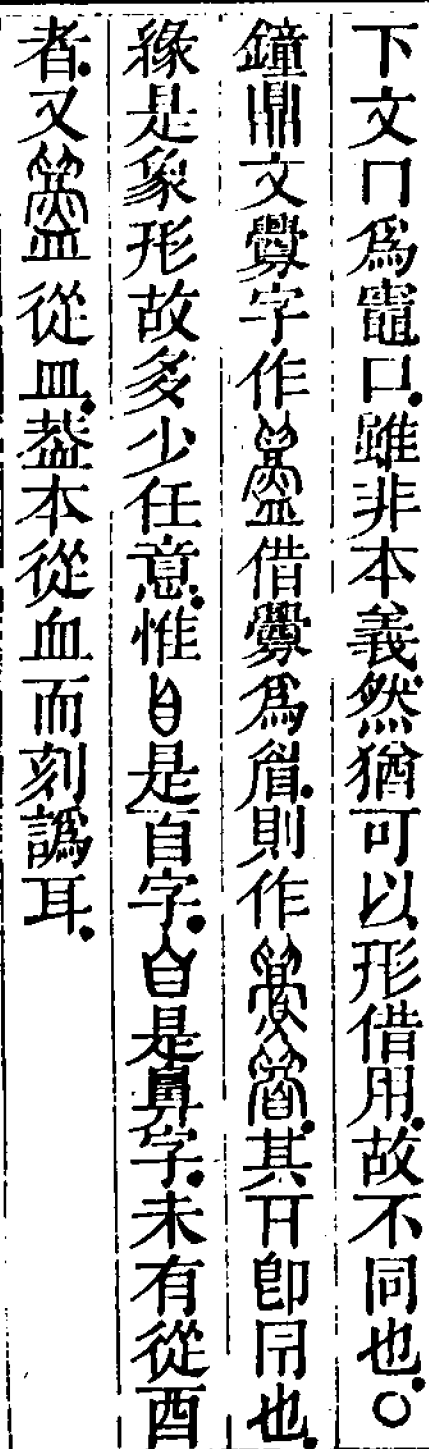 下文冂爲竈口.雖非本義然猶可以形借用.故不同也.○
鐘鼎文釁字作借釁爲眉.則作其冃卽冃也.
緣是象形故多少任意.惟是自字.是鼻字.未有從酉
者.又從皿.葢本從血而刻譌耳.